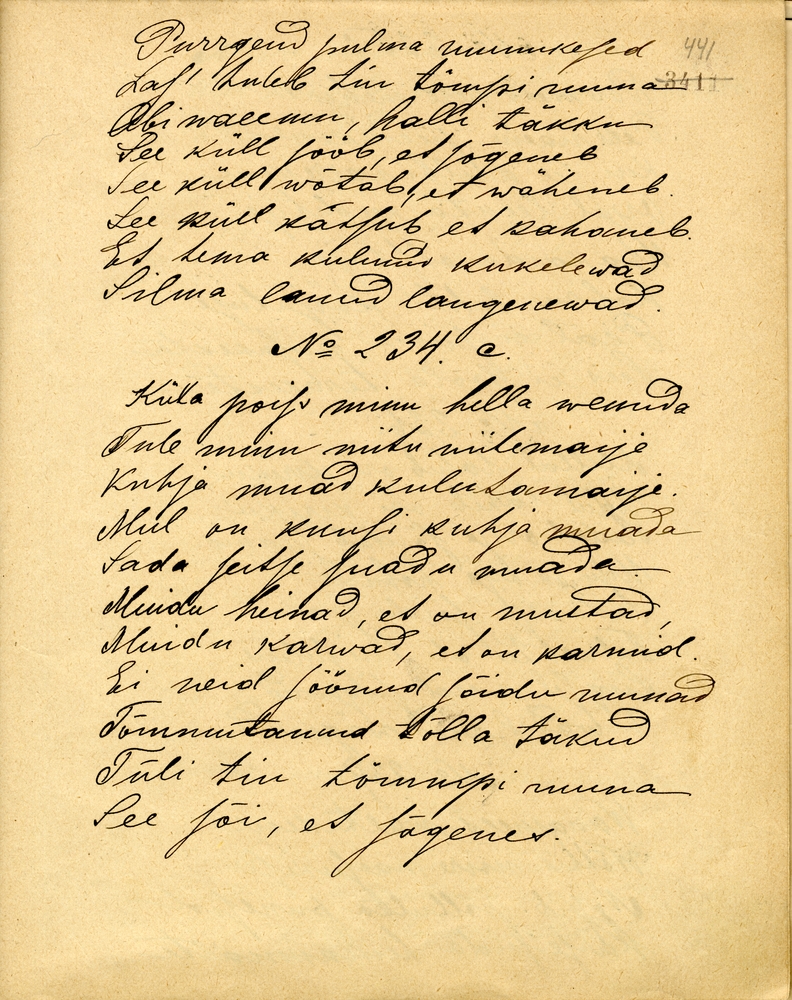 Purrgend pulma ruunukesed
441
Las' tuleb tiu tömpi ruuna
3411
Abi waeemu, halli täkku
See küll sööb, et jõgeneb
See küll wõtab, et wäheneb.
See küll kätsub et kahaneb.
Et tema kulmud kukelewad
Silma laud laugenewad.
No 234. c.
Küla poiss minu hella wenuda
Tule minu niitu niitemaije
Kuhja muad kulutamaije.
Mul on kuusi kuhja muada
Sada seitse suadu muada
Muidu heinad, et on mustad,
Muidu karwad, et on karmid.
Ei neid söönud sõidu ruunad
Tõmmutanud tõlla täkud
Tuli tiu tömmpi ruuna
See sõi, et jõgenes.